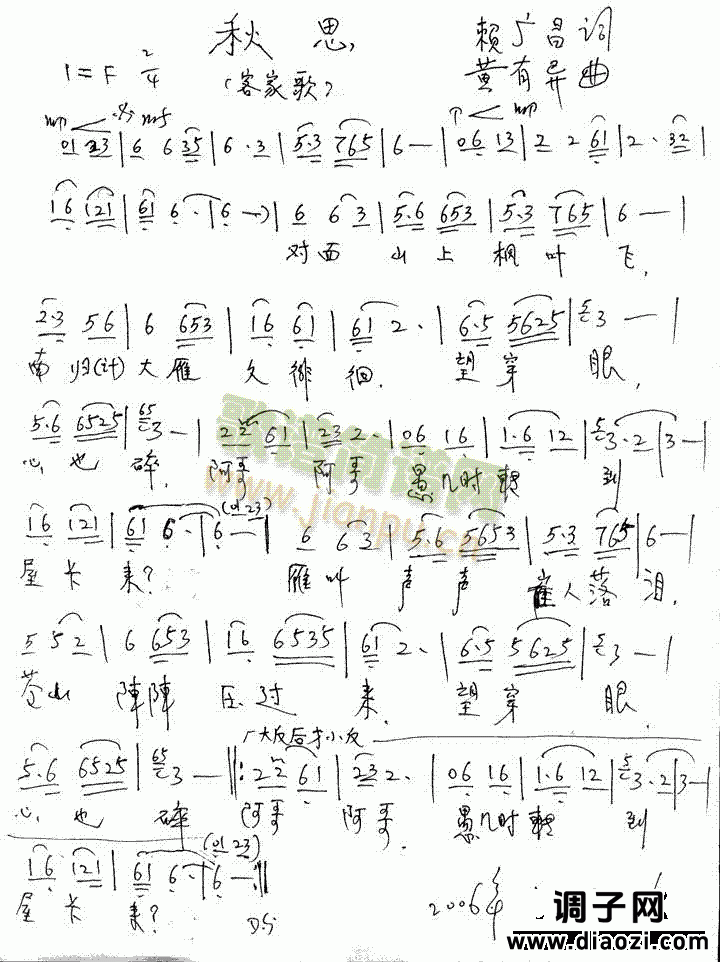 秋思
赖广昌词
1=F 2/4
(客家歌)
黄有异曲
mp mf mp
01 23 | 6 6 35 | 6·3 | 5·3 765 | 6 — | 06 13 | 2 2 61 | 2·32 |
16 121 | 61 6· | 6 —) | 6 6 3 | 5·6 653 | 5·3 765 | 6 — |
对面 山上 枫叶 飞,
2·3 56 | 6 653 | 16 61 | 61 2· | 6·5 5625 | 3 — |
南归(的)大雁 久徘徊. 望穿 眼,
5·6 6525 | 3 — | 22 61 | 23 2· | 06 16 | 1·6 12 | 3·2 | 3 — |
心也 碎, 阿哥 阿哥 几时 到
(01 23)
16 121 | 61 6· | 6 — | 6 63 | 5·6 5653 | 5·3 765 | 6 — |
屋卡 来? 雁叫 声声 崔人落泪,
5 52 | 6 653 | 16 6535 | 61 2· | 6·5 5625 | 3 — |
苍山 阵阵 压过 来. 望穿 眼,
广大反后才小反
5·6 6525 | 3 — |: 22 61 | 23 2· | 06 16 | 1·6 12 | 3·2 | 3 — |
心也 碎 阿哥 阿哥. 几时 到
(01 23)
16 121 | 61 6· | 6 — :|
屋卡 来? D.S.
2006年
歌谱简谱网
www.jianpu.cn
调子网
www.diaozi.com